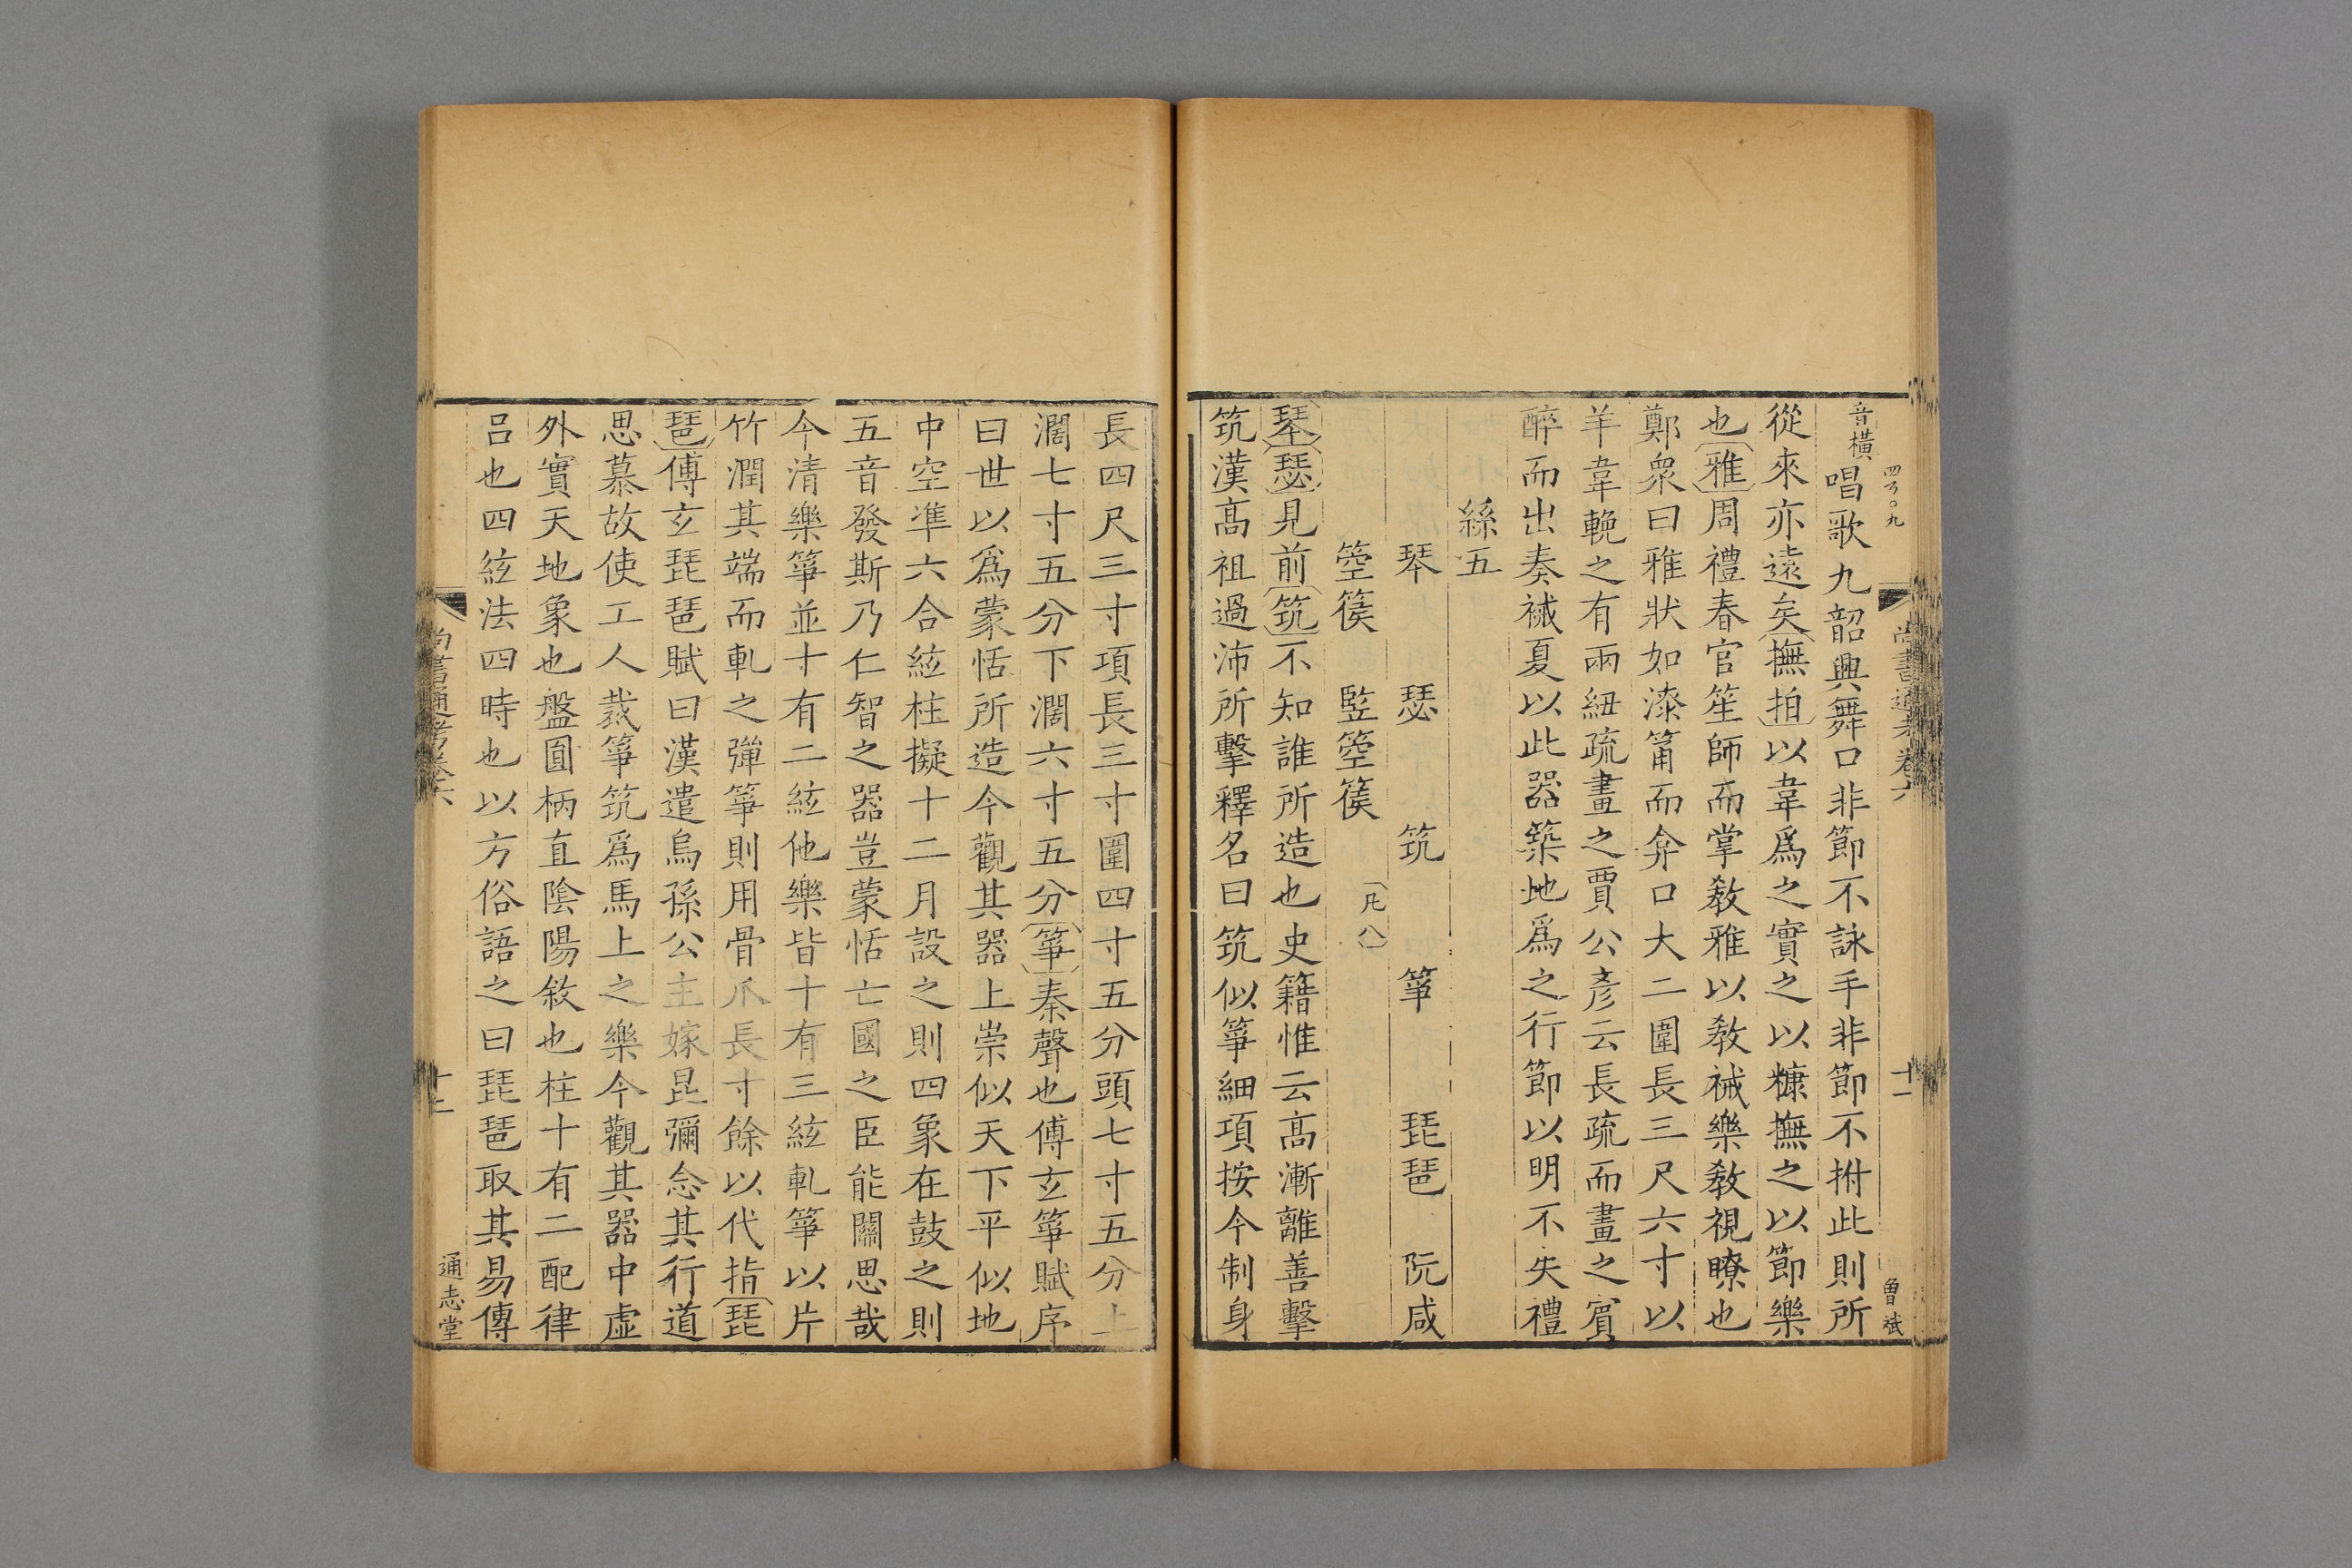 尚書通考卷六
十一
音橫唱歌九韶興舞口非節不詠手非節不拊此則所
從來亦遠矣撫拍以韋爲之實之以糠撫之以節樂
也雅周禮春官笙師而掌敎雅以敎祴樂敎視瞭也
鄭衆曰雅狀如漆筩而弇口大二圍長三尺六寸以
羊韋鞔之有兩紐疏畫之賈公彥云長疏而畫之賓
醉而出奏祴夏以此器築地爲之行節以明不失禮
絲五
琴 瑟 筑 箏 琵琶 阮咸
箜篌 竪箜篌 凡八
琴瑟見前筑不知誰所造也史籍惟云高漸離善擊
筑漢高祖過沛所擊釋名曰筑似箏細項按今制身
長四尺三寸項長三寸圍四寸五分頭七寸五分上
濶七寸五分下濶六寸五分箏秦聲也傅玄箏賦序
曰世以爲蒙恬所造今觀其器上崇似天下平似地
中空準六合絃柱擬十二月設之則四象在鼓之則
五音發斯乃仁智之器豈蒙恬亡國之臣能關思哉
今清樂箏並十有二絃他樂皆十有三絃軋箏以片
竹潤其端而軋之彈箏則用骨爪長寸餘以代指琵
琶傅玄琵琶賦曰漢遣烏孫公主嫁昆彌念其行道
思慕故使工人裁箏筑爲馬上之樂今觀其器中虛
外實天地象也盤圓柄直陰陽敘也柱十有二配律
呂也四絃法四時也以方俗語之曰琵琶取其易傳
尚書通考卷六
通志堂